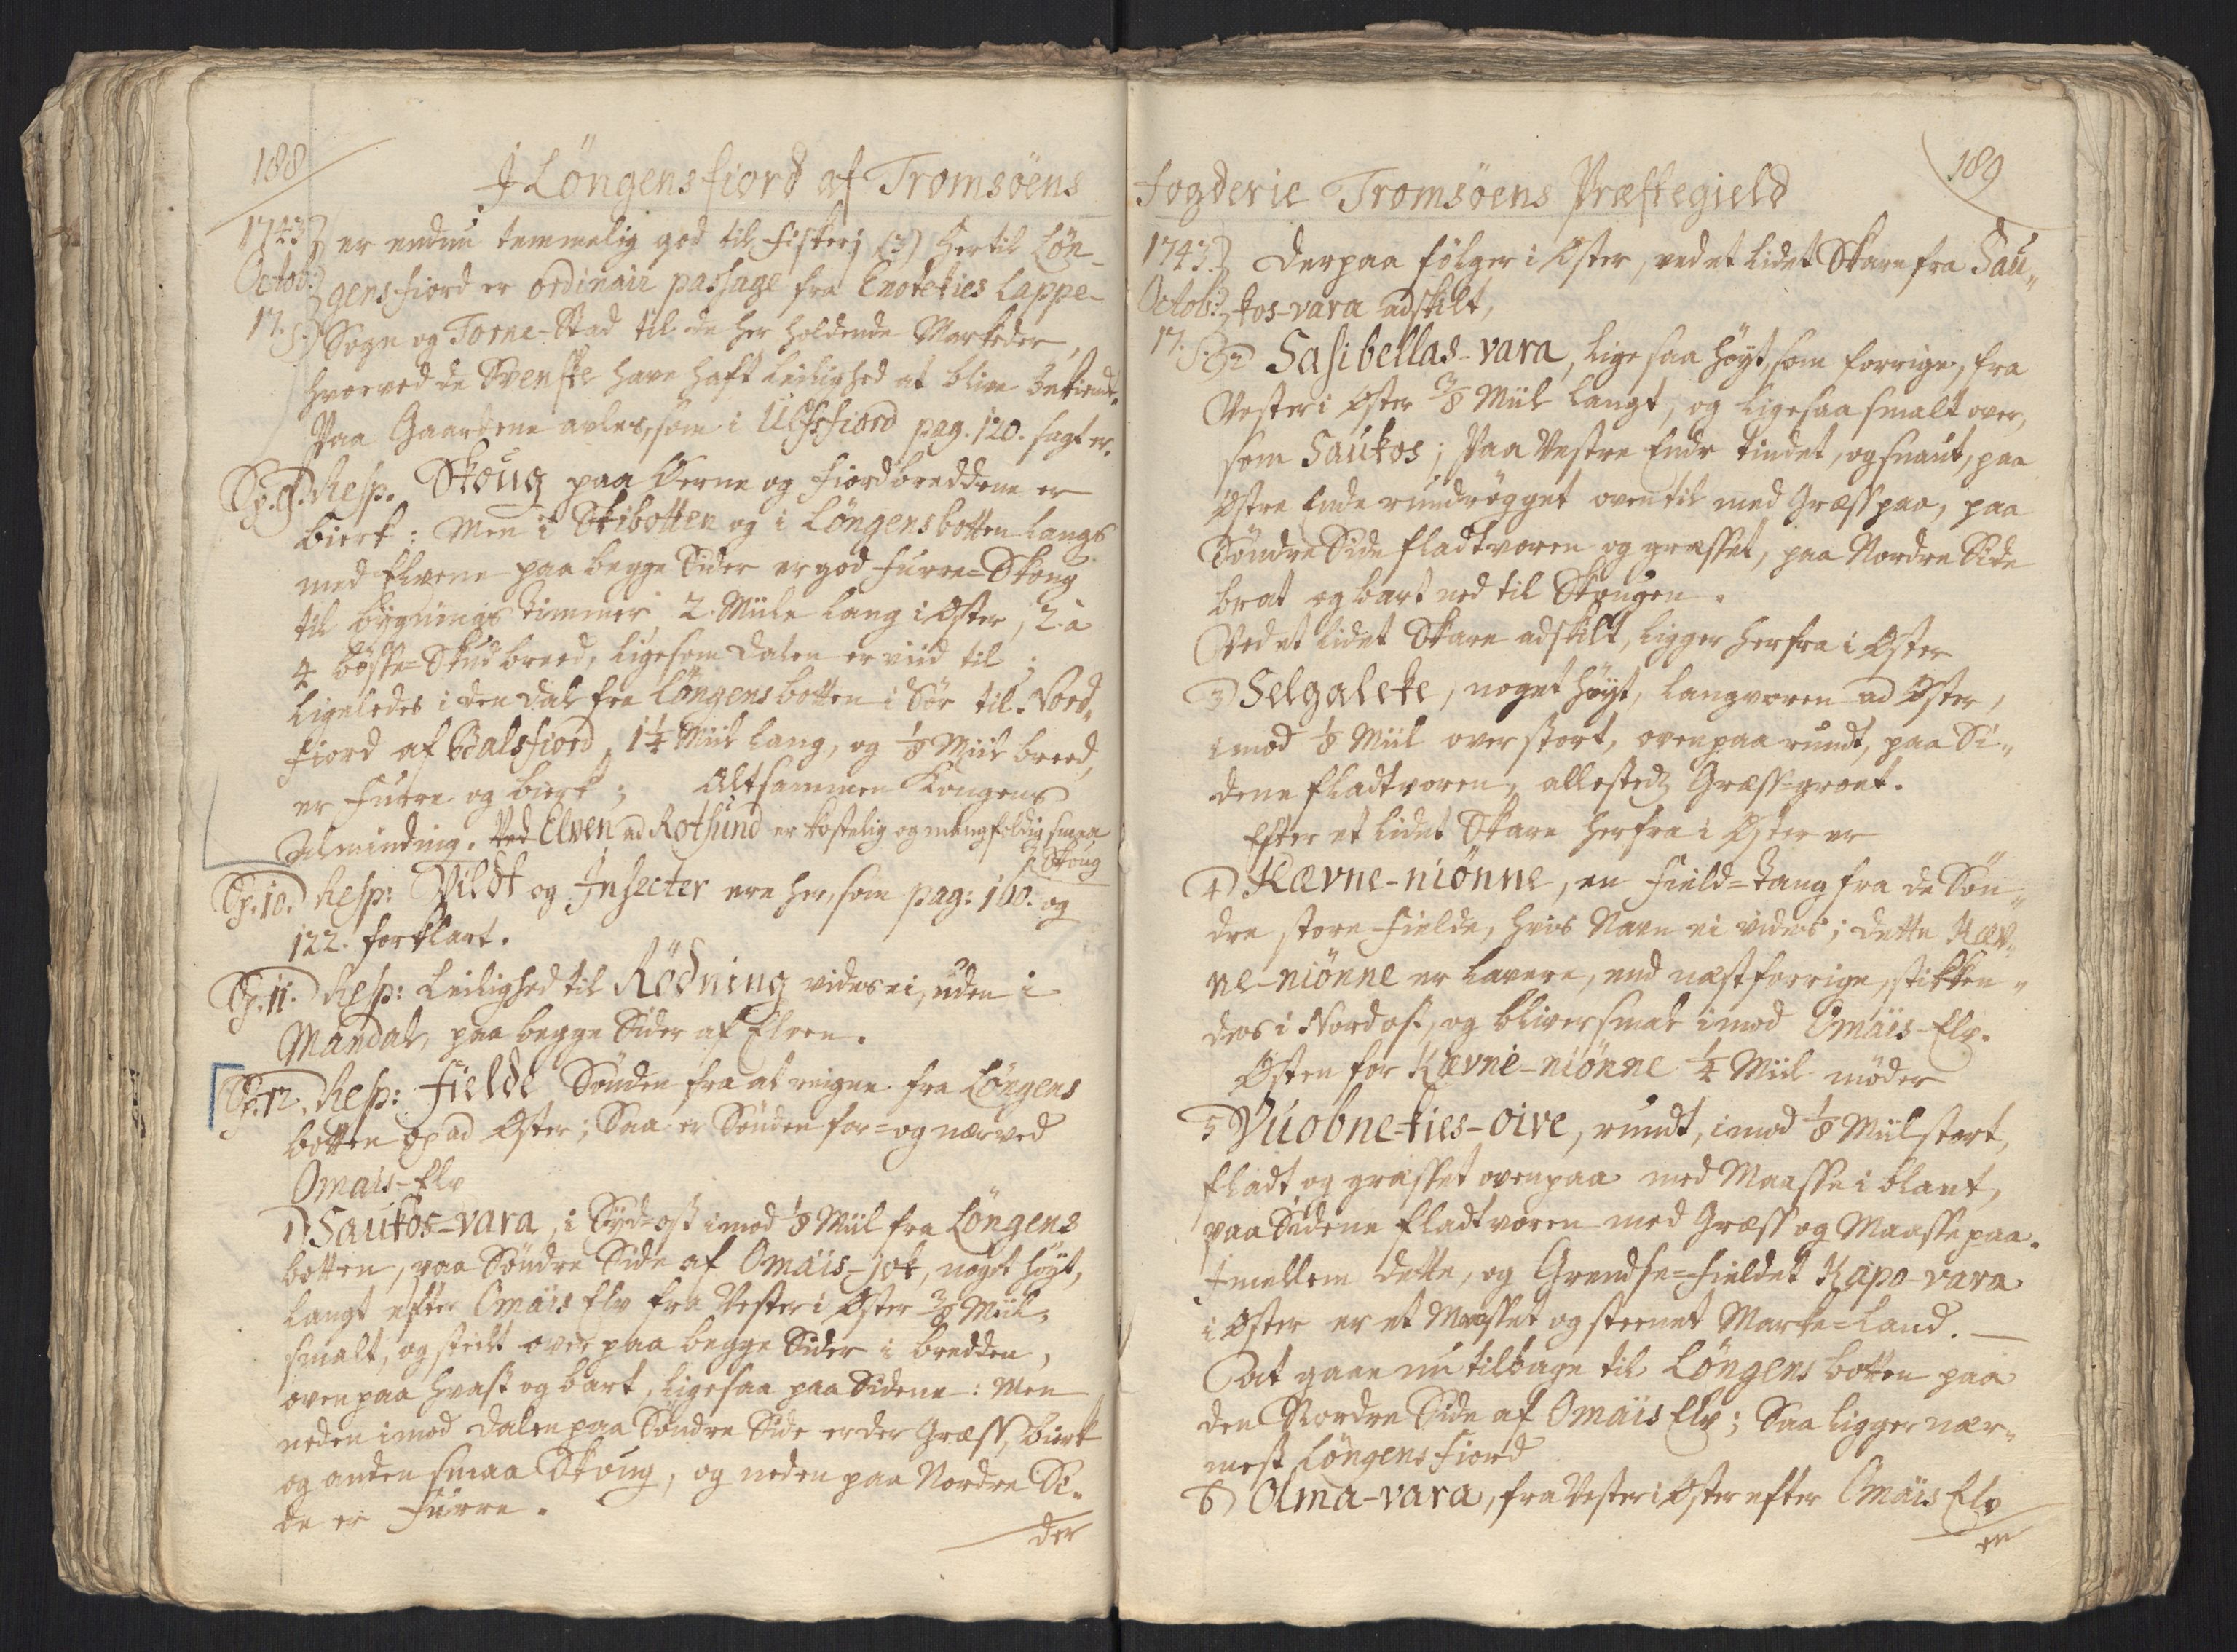 188
I Löngensfiord af Tromsöens
1743 er endnu temmelig god til Fiskeri (3) Hertil Lön-
Octob: gensfiord er ordinair passage fra Enotekies Lappe-
17. S. Sogn og Torne-Stad til de her holdende Markeder,
hvorved de Svenske have haft Leilighed at blive bekiendt.
Paa Gaardene avles, som i Ulfsfiord pag. 120. sagt er.
Sp. 9. Resp. Skoug paa Öerne og Fiordbreddene er
birk: Men i Skibotten og i Löngensbotten langs
med Elvene paa begge Sider er god Furre-Skoug
til bygnings Timmer, 2. Miile lang i Öster, 2. à
4 bösse-Skud breed, ligesom Dalen er viid til;
Ligeledes i den Dal fra Löngensbotten i Sör til Nord-
fiord af Balsfiord, 1¼ Miil lang, og ⅛ Miil breed,
er Furre og birk; Altsammen Kongens
Alminding. Ved Elven ad Rotsund er kostelig og mangfoldig smaa
Skoug
Sp. 10. Resp: Vildt og Insecter ere her, som pag: 160. og
122. forklart.
Sp. 11. Resp: Leilighed til Rödning vides ei, uden i
Mandal, paa begge Sider af Elven.
Sp. 12. Resp: Fielde Sönden fra at reigne fra Löngens
botten op ad Öster; Saa er Sönden for- og nær ved
Omais-Elv
1) Saukos-vara, i Syd-ost imod ⅛ Miil fra Löngens
botten, paa Söndre Side af Omais-jok, noget höyt,
langt efter Omais Elv fra Vester i Öster ⅜ Miil,
smalt, og steilt over paa begge Sider i bredden,
oven paa hvast og bart, ligesaa paa Sidene: Men
neden imod Dalen paa Söndre Side er der Græss, birk
og anden smaa Skoug, og neden paa Nordre Si-
de er Furre.
der
Fogderie Tromsöens Præstegield
189
1743. Derpaa fölger i Öster, ved et lidet Skare fra Sau-
Octob: kos-vara adskilt,
17. S. 2) Sasibellas-vara, lige saa höyt, som forrige, fra
Vester i Öster ⅜ Miil langt, og ligesaa smalt over,
som Saukos; Paa Vestre Ende tindet, og snaut, paa
Östre Ende rundrögget oventil med Græss paa, paa
Söndre Side fladtvoren og græsset, paa Nordre Side
brat og bart ned til Skougen.
Ved et lidet Skare adskilt, ligger herfra i Öster
3) Selgaleke, noget höyt, langvoren ad Öster,
imod ⅛ Miil over stort, ovenpaa rundt, paa Si-
dene fladtvoren, allesteds Græss-groet.
Efter et lidet Skare herfra i Öster er
4) Kævne-niönne, en Field-Tang fra de Sön-
dre store Fielde, hvis Navn ei vides; dette Kæv-
ne-niönne er lavere, end næstforrige, stikken-
des i Nordost, og bliver smal imod Omais-Elv.
Östen for Kævne-niönne ¼ Miil möder
5) Vuobne-kies-oive, rundt, imod ⅛ Miil stort,
fladt og græsset ovenpaa med Maasse iblant,
paa Sidene fladtvoren med Græss og Maasse paa.
Imellem dette, og Grendse-Fieldet Kapo-vara
i Öster er et Maasset og steenet Marke-Land. —
At gaae nu tilbage til Löngens botten paa
den Nordre Side af Omais Elv; Saa ligger nær-
mest Löngensfiord
6) Olma-vara, fra Vester i Öster efter Omais Elv
en